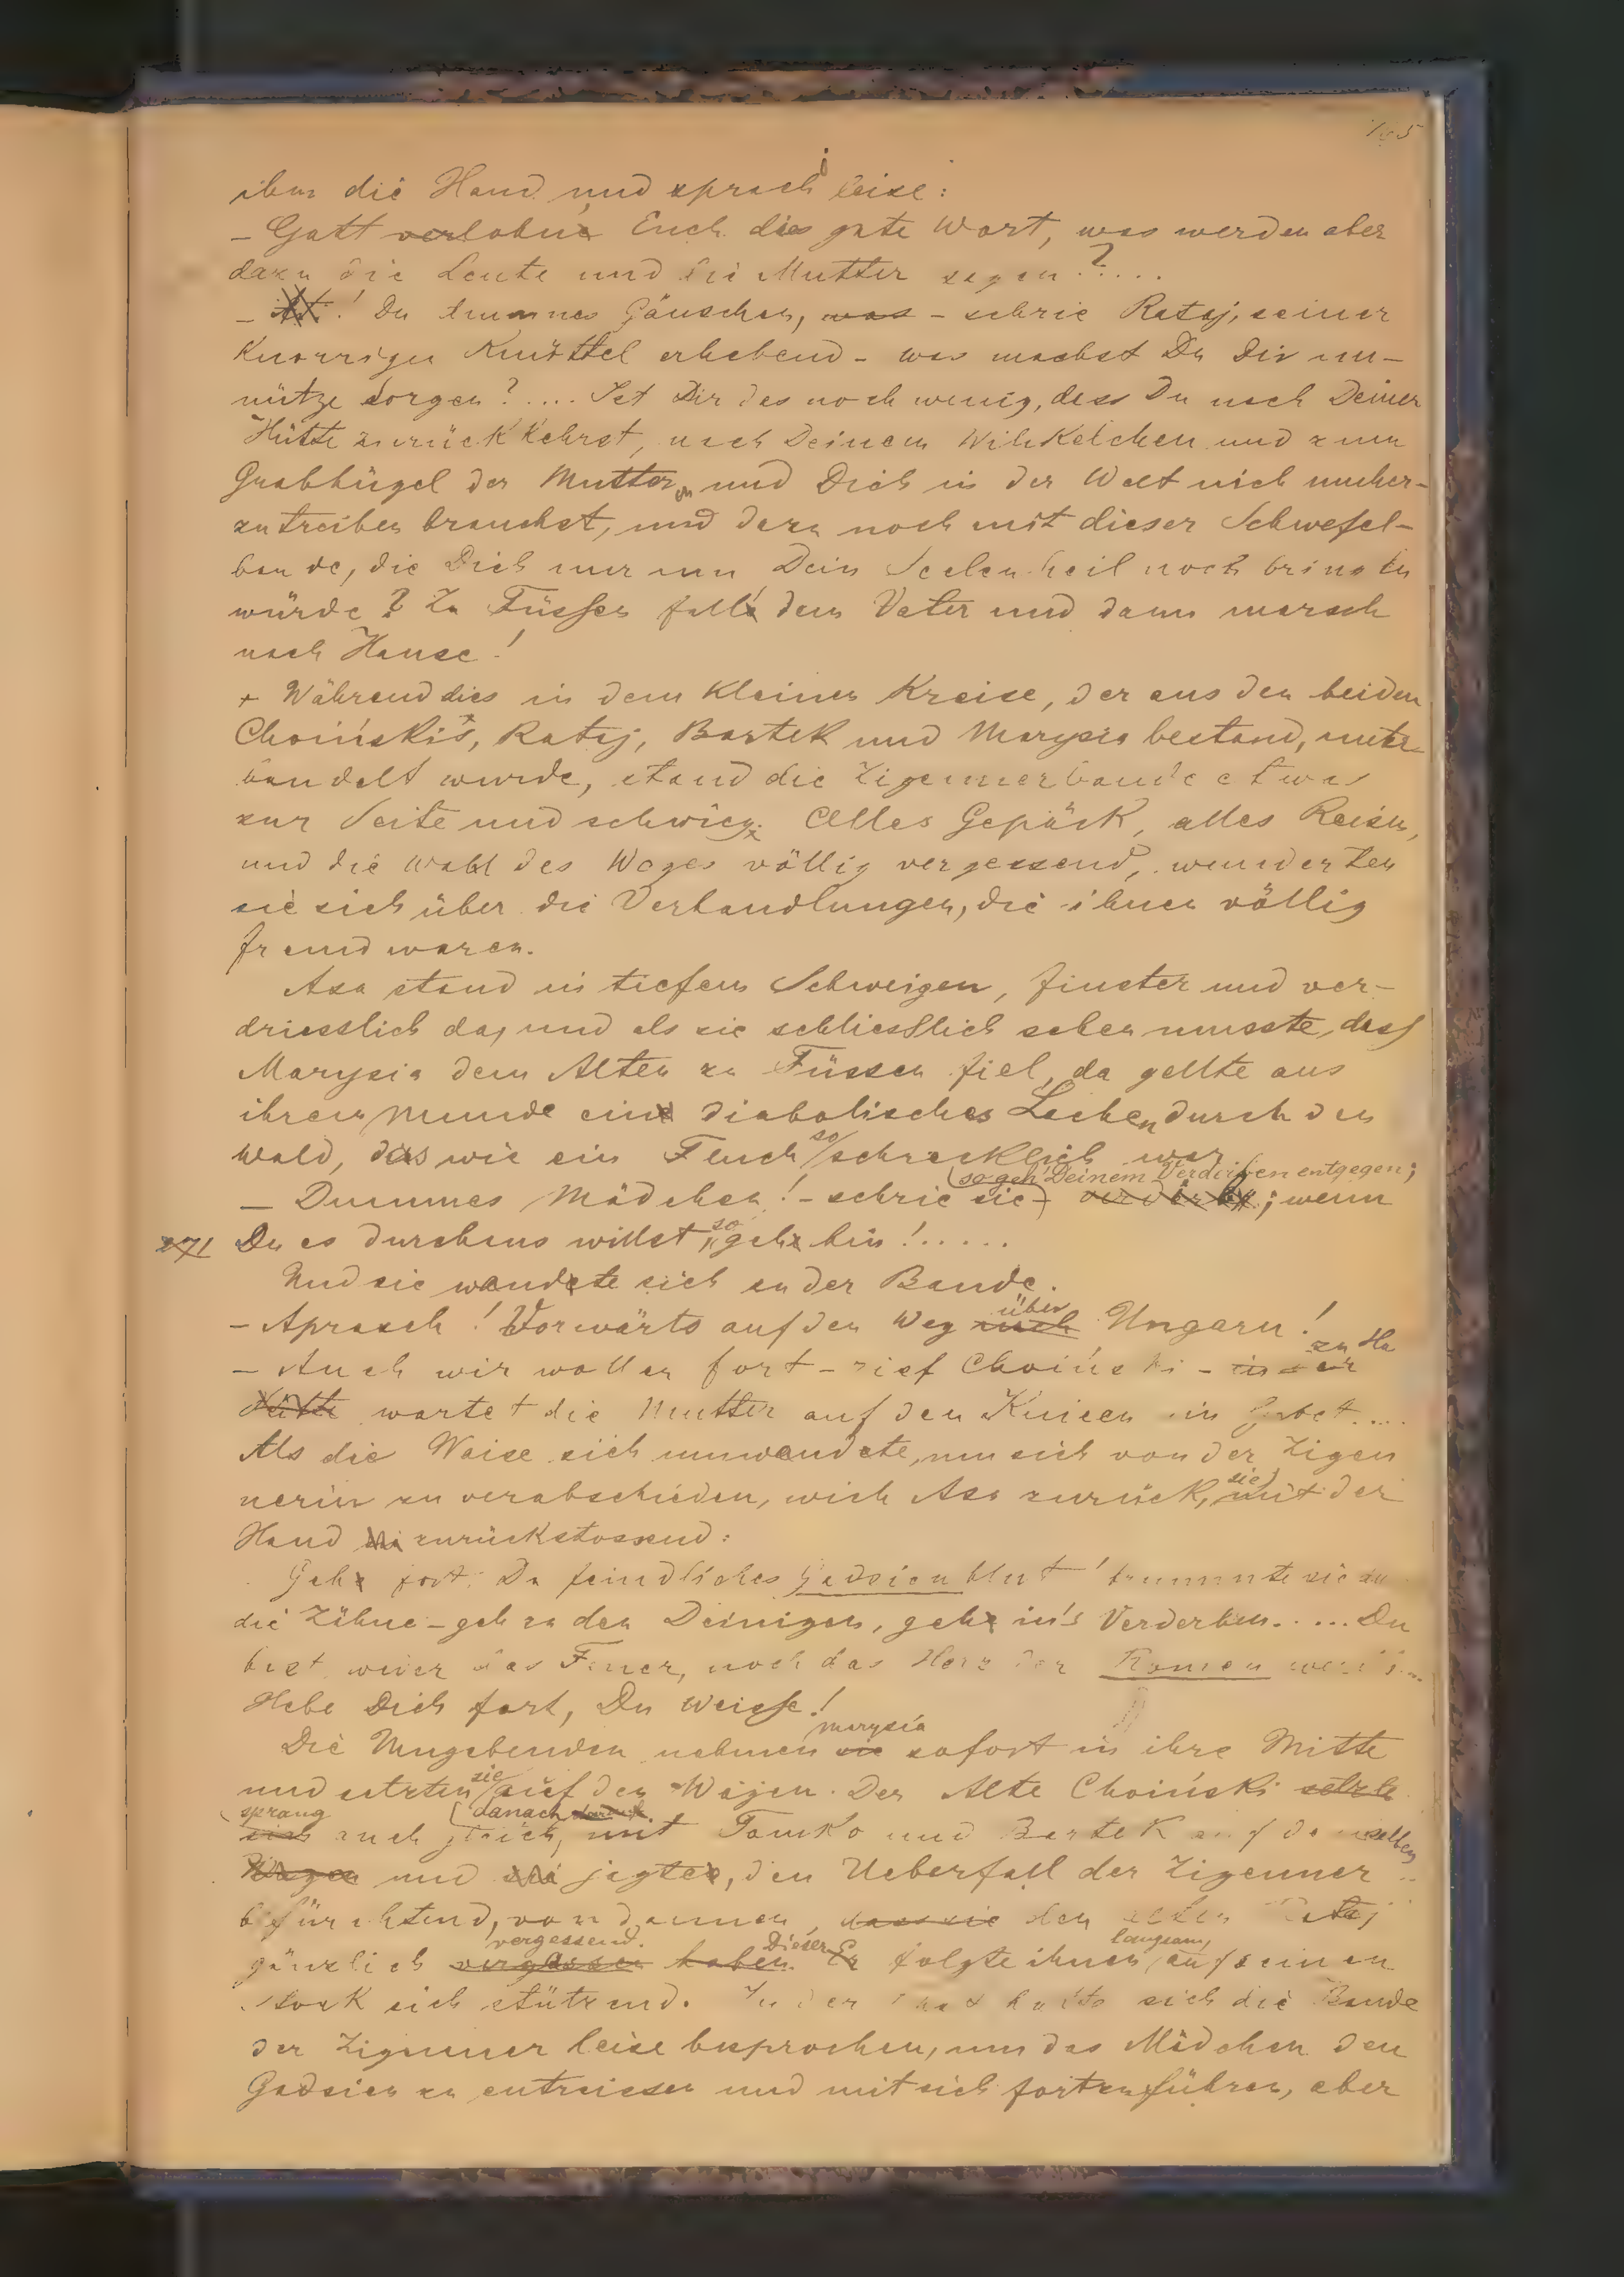 ihm die Hand und sprach leise:
– Gott verlohne Euch das gute Wort, was werden aber
dazu die Leute und die Mutter sagen?....
– ! Du dummes Gänschen, was – schrie Rataj, seinen
Knorrigen Knüttel erhebend – was machst Du Dir un-
nütze Sorgen?.... Ist Dir das noch wenig, dass Du nach Deiner
Hütte zurückkehrst, nach Deinem Winkelchen und zum
Grabhügel der Mutter, und Dich in der Welt nich umher-
zutreiben brauchst, und dazu noch mit dieser Schwefel-
bande, die Dich nur um Dein Seelenheil noch bringen
würde? Zu Füssen fall' dem Vater und dann marsch
nach Hause!
+ Während dies in dem Kleinen Kreise, der aus den beiden
Choiński's, Rataj, Bartek und Marysia bestand, unter-
handelt wurde, stand die Zigeunerbande etwas
zur Seite und schwieg. Alles Gepäck, alles Reisen,
und die Wahl des Weges völlig vergessend, wunderten
sie sich über die Verhandlungen, die ihnen völlig
fremd waren.
Aza stand in tiefem Schweigen, finster und ver-
driesslich da, und als sie schliesslich sehen musste, dass
Marysia dem Alten zu Füssen fiel, da gellte aus
ihrem Munde ein diabolisches Lachen durch den
Wald, das wie ein Fluch so schrecklich war.
(so geh' Deinem Verderben entgegen;
– Dummes Mädchen! – schrie sie –) verderbe; wenn
271 Du es durchaus willst, so geh hin!.....
Und sie wandte sich an der Bande.
– Aprasch! Vorwärts auf den Weg nach über Ungarn!
– Auch wir wollen fort – rief Choiński – in der zu Ha
Hütte wartet die Mutter auf den Knieen im Gebet....
Als die Waise sich umwandete, um sich von der Zigeu
nerin zu verabschieden, wich Aza zurück, sie mit der
Hand zurückstossend:
Geh fort, Du feindliches Gadsienblut! brummte sie in
die Zähne – geh zu den Deinigen, geh in's Verderben..... Du
bist weder das Feuer, noch das Herz der Romen
Hebe Dich fort, Du Weisse!
Die Umgebenden nahmen sie Marysia sofort in ihre Mitte
und setzten sie auf den Wagen. Der Alte Choiński setzte
sich sprang auch gleich danach, mit Tomko und Bartek auf denselben
Wagen und sie jagten, den Ueberfall der Zigeuner
befürchtend, von dannen, dass sie den alten Rataj
gänzlich vergessen haben vergessend. Dieser Er folgte ihnen langsam, auf seinen
Stock sich stützend. In der That hatte sich die Bande
der Zigeuner leise besprochen, um das Mädchen den
Gadsien zu entreissen und mit sich fortzuführen, aber